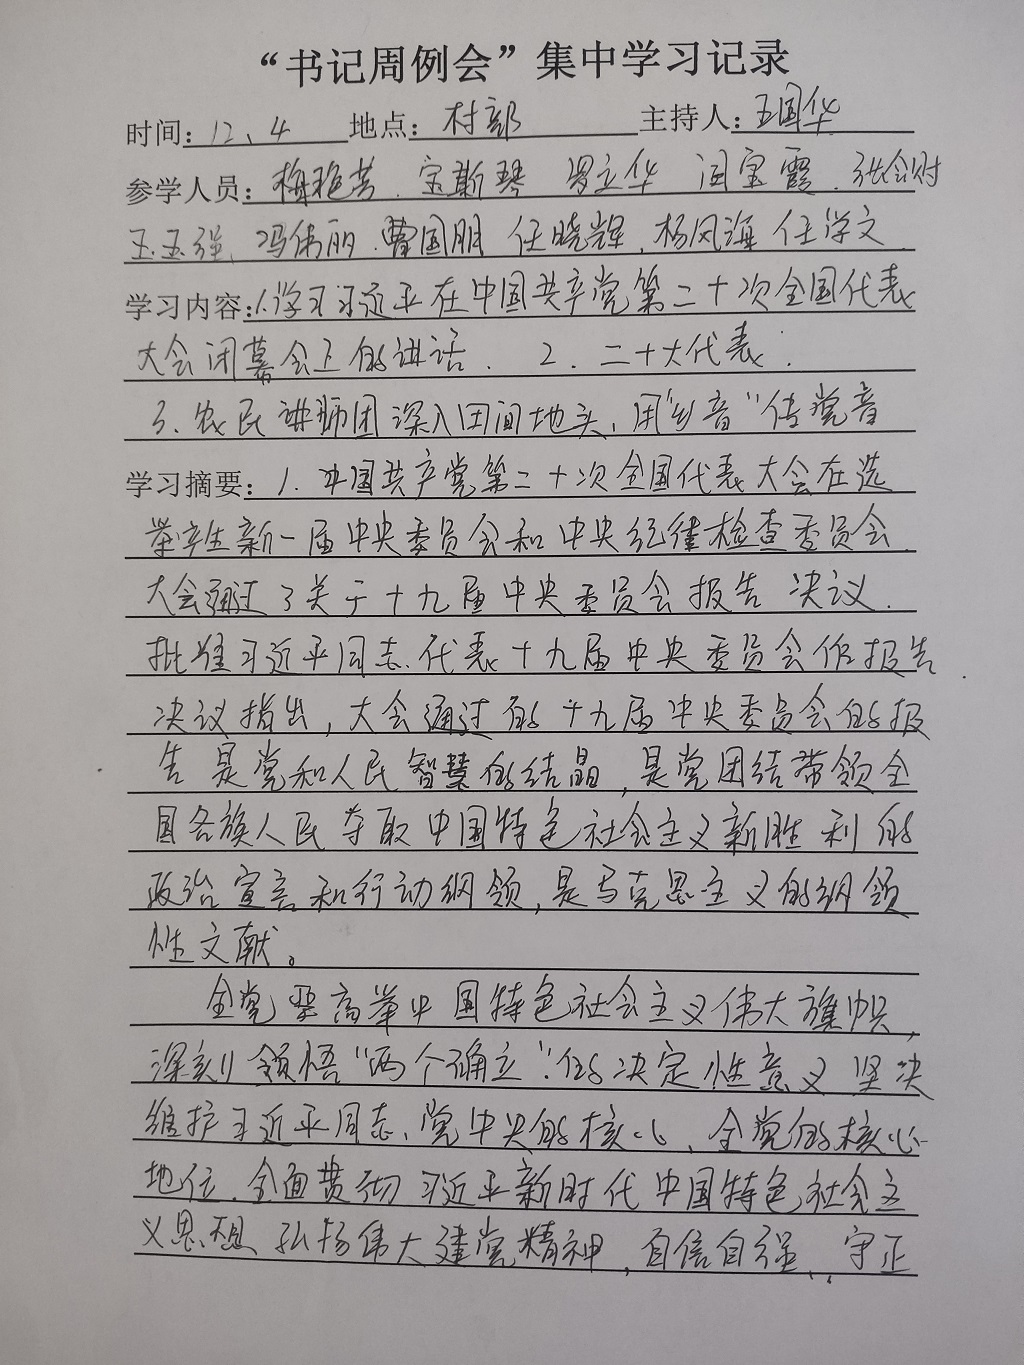 “书记周例会”集中学习记录
时间: 12、4 地点: 村部 主持人: 王国华
参学人员: 梅艳芳. 宝斯琴 罗立华 闫宝霞. 张会财
王玉强、冯伟丽.曹国朋 任晓辉, 杨凤海 任学文
学习内容: 1.学习习近平在中国共产党第二十次全国代表
大会闭幕会上的讲话. 2. 二十大代表.
3、农民讲师团深入田间地头, 用“乡音”传党音
学习摘要: 1. 中国共产党第二十次全国代表大会在选
举产生新一届中央委员会和中央纪律检查委员会.
大会通过了关于十九届中央委员会报告 决议.
批准习近平同志.代表十九届中央委员会作报告
决议指出, 大会通过的十九届中央委员会的报
告是党和人民智慧的结晶, 是党团结带领全
国各族人民夺取中国特色社会主义新胜利的
政治宣言和行动纲领, 是马克思主义的纲领
性文献。
全党要高举中国特色社会主义伟大旗帜,
深刻领悟“两个确立”的决定性意义 坚决
维护习近平同志、党中央的核心、全党的核心
地位.全面贯彻习近平新时代中国特色社会主
义思想 弘扬伟大建党精神, 自信自强、守正